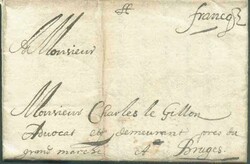 francq
A Monsieur
Monsieur Charles le Gillon
Advocat et demeurant pres du
grand marché A Bruges.